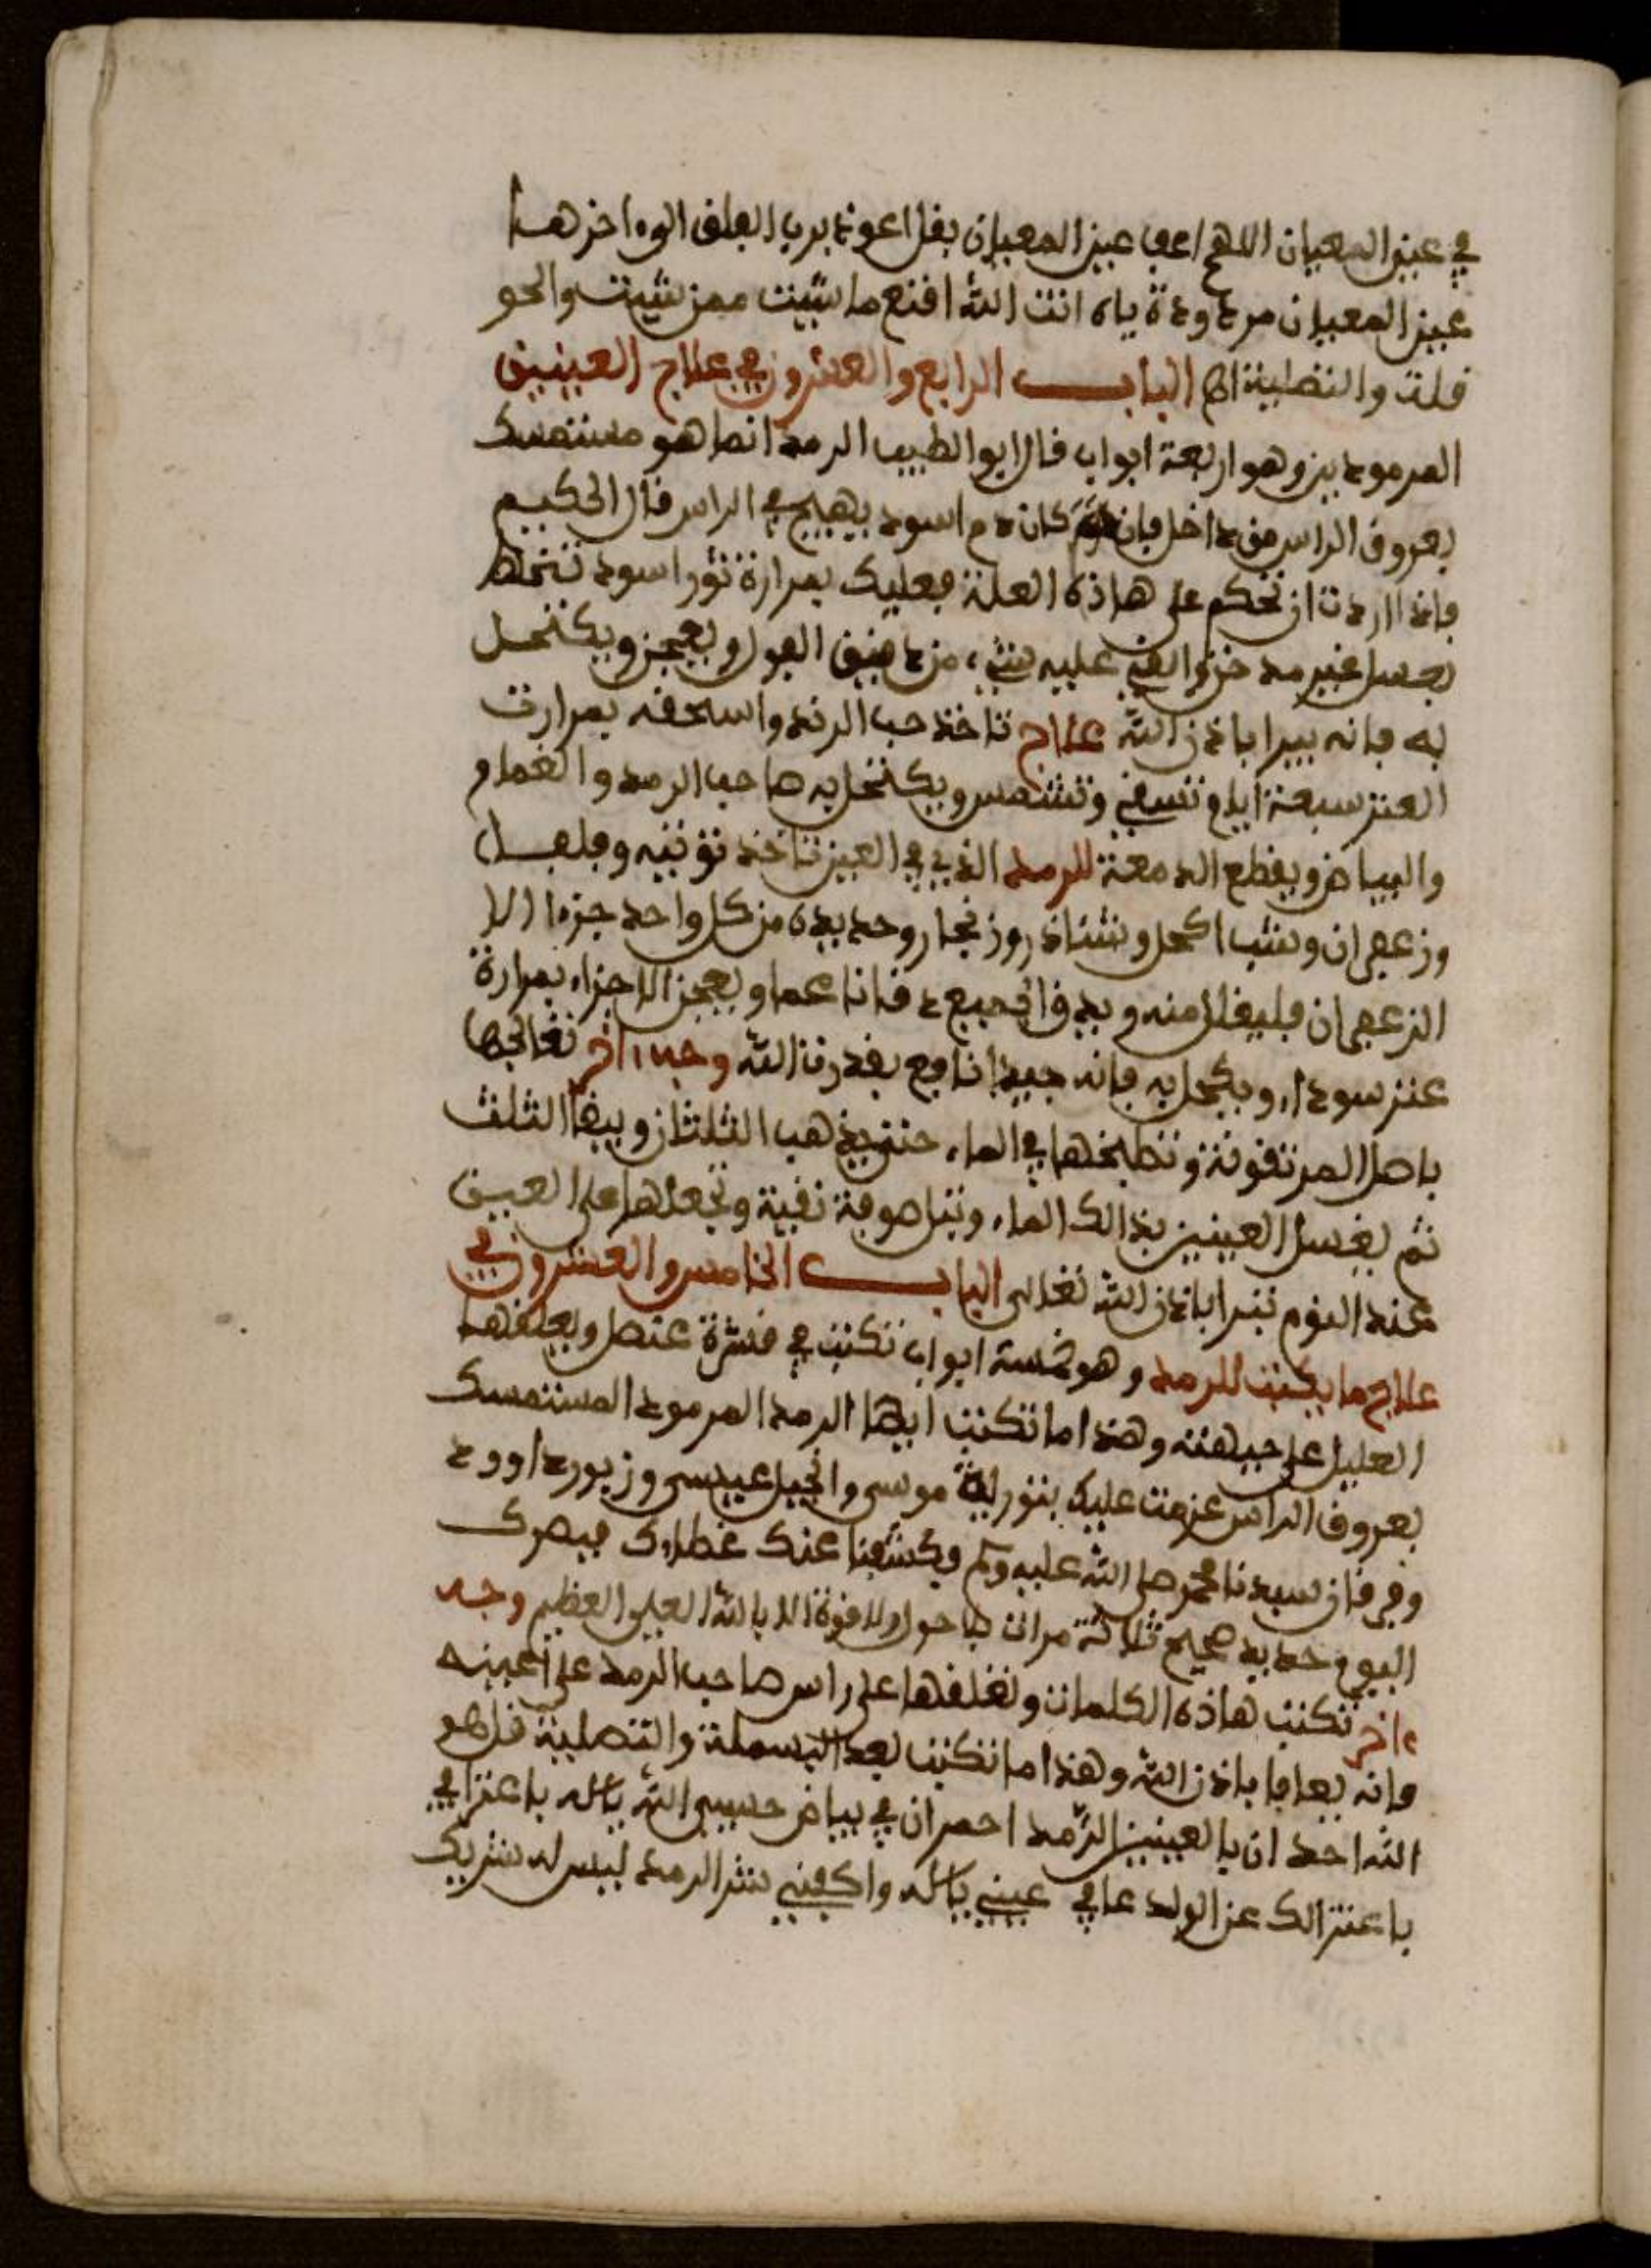 في عين المعيان اللهم اعم عين المعيان بقل اعوذ برب الفلق الى ءاخرها
عين المعيان مردودة ياه انت الله اقنع ما شيت ممن شيت والحو
قلت والتصلية اه البـــاب الرابع والعشرون في علاج العينين
المرمودين وهو اربعة ابواب قال ابو الطبيب الرمد انما هو مستمسك
بعروق الراس من داخل فان كان دم اسود يهيج في الراس قال الحكيم
فاذا اردت ان تحكم على هاذه العلة فعليك بمرارة ثور اسود تنخلط
بعسل غير مدخن والق عليه شيء من دقيق الفول ويعجن ويكتحل
به فانه يبرا باذن الله علاج تاخذ حب الرند واسحقه بمرارت
العنز سبعة ايام تسقي وتشمس ويكتحل به صاحب الرمد والغمام
والبياض ويقطع الدمعة للرمد الذي في العين تاخذ توتيه وفلفل
وزعفران وشب اكحل وشناذر وزنجار وحديده من كل واحد جزءا الا
الزعفران فليقلل منه ويدق الجميع دقا ناعما ويعجن الاجزاء بمرارة
عنز سوداء ويكحل به فانه جيدا نافع بقدرت الله وجه ءاخر تعالجها
باصل المرتقوتة وتطبخها في الماء حتى يذهب الثلثان ويبقا الثلث
ثم يغسل العينين بذالك الماء وتبل صوفة نقية وتجعلها على العين
عند النوم تبرا باذن الله تعالى البـــاب الخامس والعشرون في
علاج ما يكتب للرمد وهو خمسة ابواب تكتب في قشرة عنصل ويعلقها
العليل على جبهته وهذا ما تكتب ايها الرمد المرمود المستمسك
بعروق الراس عزمت عليك بتورية موسى وانجيل عيسى وزبور داوود
وفرقان سيدنا محمد صلى الله عليه وسلم فكشفنا عنك غطاءك فبصرك
اليوم حديد صحيح ثلاثة مرات لا حول ولا قوة الا بالله العلي العظيم وجه
ءاخر تكتب هاذه الكلمات وتعلقها على راس صاحب الرمد على عينه
فانه يعافا باذن الله وهذا ما تكتب بعد البسملة والتصلية قل هو
الله احد ان يا لعينين الرمد احمران في بياض حسبي الله يا الله باعتزا في
باعتزالك عن الولد عافي عيني يا الله واكفني شر الرمد ليس له شريك